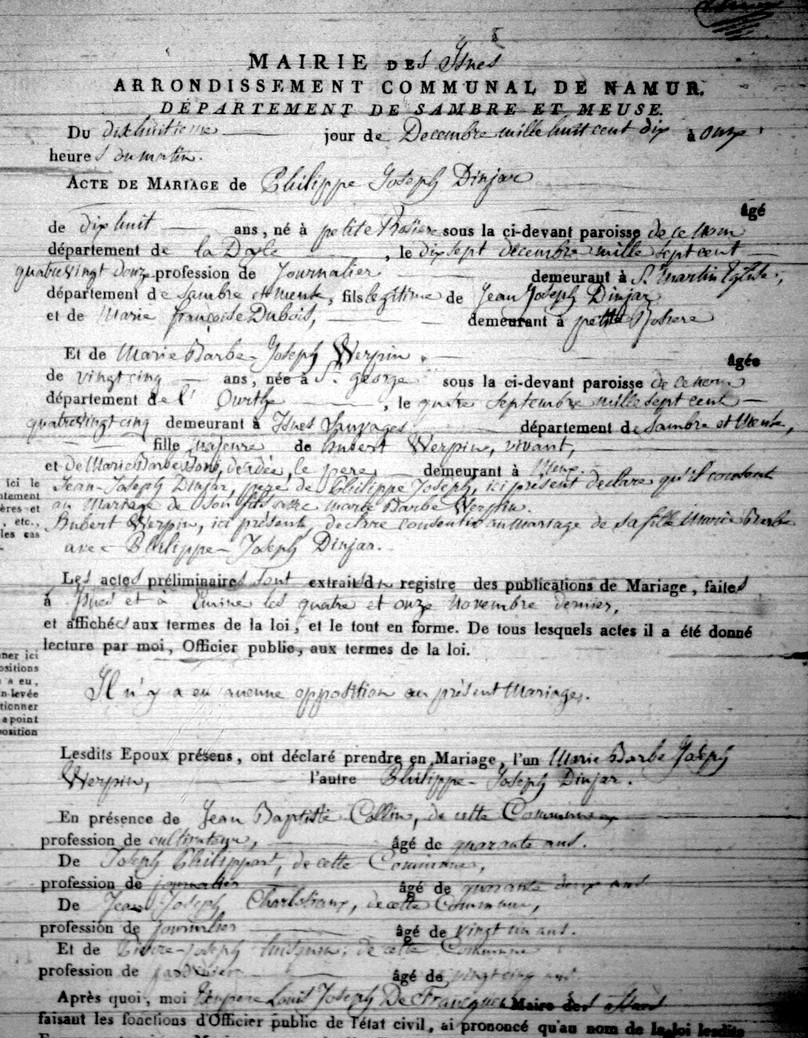 MAIRIE DEs Isnes
ARRONDISSEMENT COMMUNAL DE NAMUR.
DÉPARTEMENT DE SAMBRE ET MEUSE.
Du dixhuitieme jour de Decembre mille huit cent dix à onze
heures du matin.
ACTE DE MARIAGE de Philippe Joseph Dinjar
âgé
de dix huit ans, né à petite Rosiere sous la ci-devant paroisse de ce nom
département de la Dyle, le dix sept decembre mille sept cent
quatrevingt douze profession de Journalier demeurant à St. Martin
département de Sambre et meuse, fils legitime de Jean Joseph Dinjar
et de Marie françoise Dubois, demeurant à petite Rosiere
Et de Marie Barbe-Joseph Werpin. âgée
de vingt cinq ans, née à St. george sous la ci-devant paroisse de ce nom
département de l'Ourthe, le quatre Septembre mille sept cent
quatrevingt cinq demeurant à Isnes Sauvages département de Sambre et Meuse,
fille majeure de hubert Werpin, vivant,
et de Marie Barbe décédée, le père demeurant à
Jean-Joseph Dinjar, père de Philippe Joseph, ici présent declare qu'il consent
au Mariage de son fils avec marie Barbe Werpin.
Hubert Werpin, ici présent, declare consentir au mariage de sa fille Marie Barbe
avec Philippe-Joseph Dinjar.
ici le
ntement
ères et
, etc.,
les cas
Les actes préliminaires sont extraits du registre des publications de Mariage, faites
à Isnes et à Emine les quatre et onze novembre dernier,
et affichés aux termes de la loi, et le tout en forme. De tous lesquels actes il a été donné
lecture par moi, Officier public, aux termes de la loi.
ner ici
positions
a eu,
n levée
tionner
a point
position
Il n'y a eu aucune opposition au présent Mariage.
Lesdits Epoux présens, ont déclaré prendre en Mariage, l'un Marie Barbe Joseph
Werpin, l'autre Philippe-Joseph Dinjar.
En présence de Jean Baptiste Collin, de cette Commune,
profession de cultivateur, âgé de quarante ans.
De Joseph Philippart, de cette Commune,
profession de journalier âgé de quarante deux ans
De Jean Joseph Charlotiaux, de cette Commune,
profession de journalier âgé de vingt un ans.
Et de Pierre-Joseph de cette Commune
profession de âgé de vingt cinq ans
Après quoi, moi Louis Joseph De Francquen Maire des
faisant les fonctions d'Officier public de l'état civil, ai prononcé qu'au nom de la loi lesdits